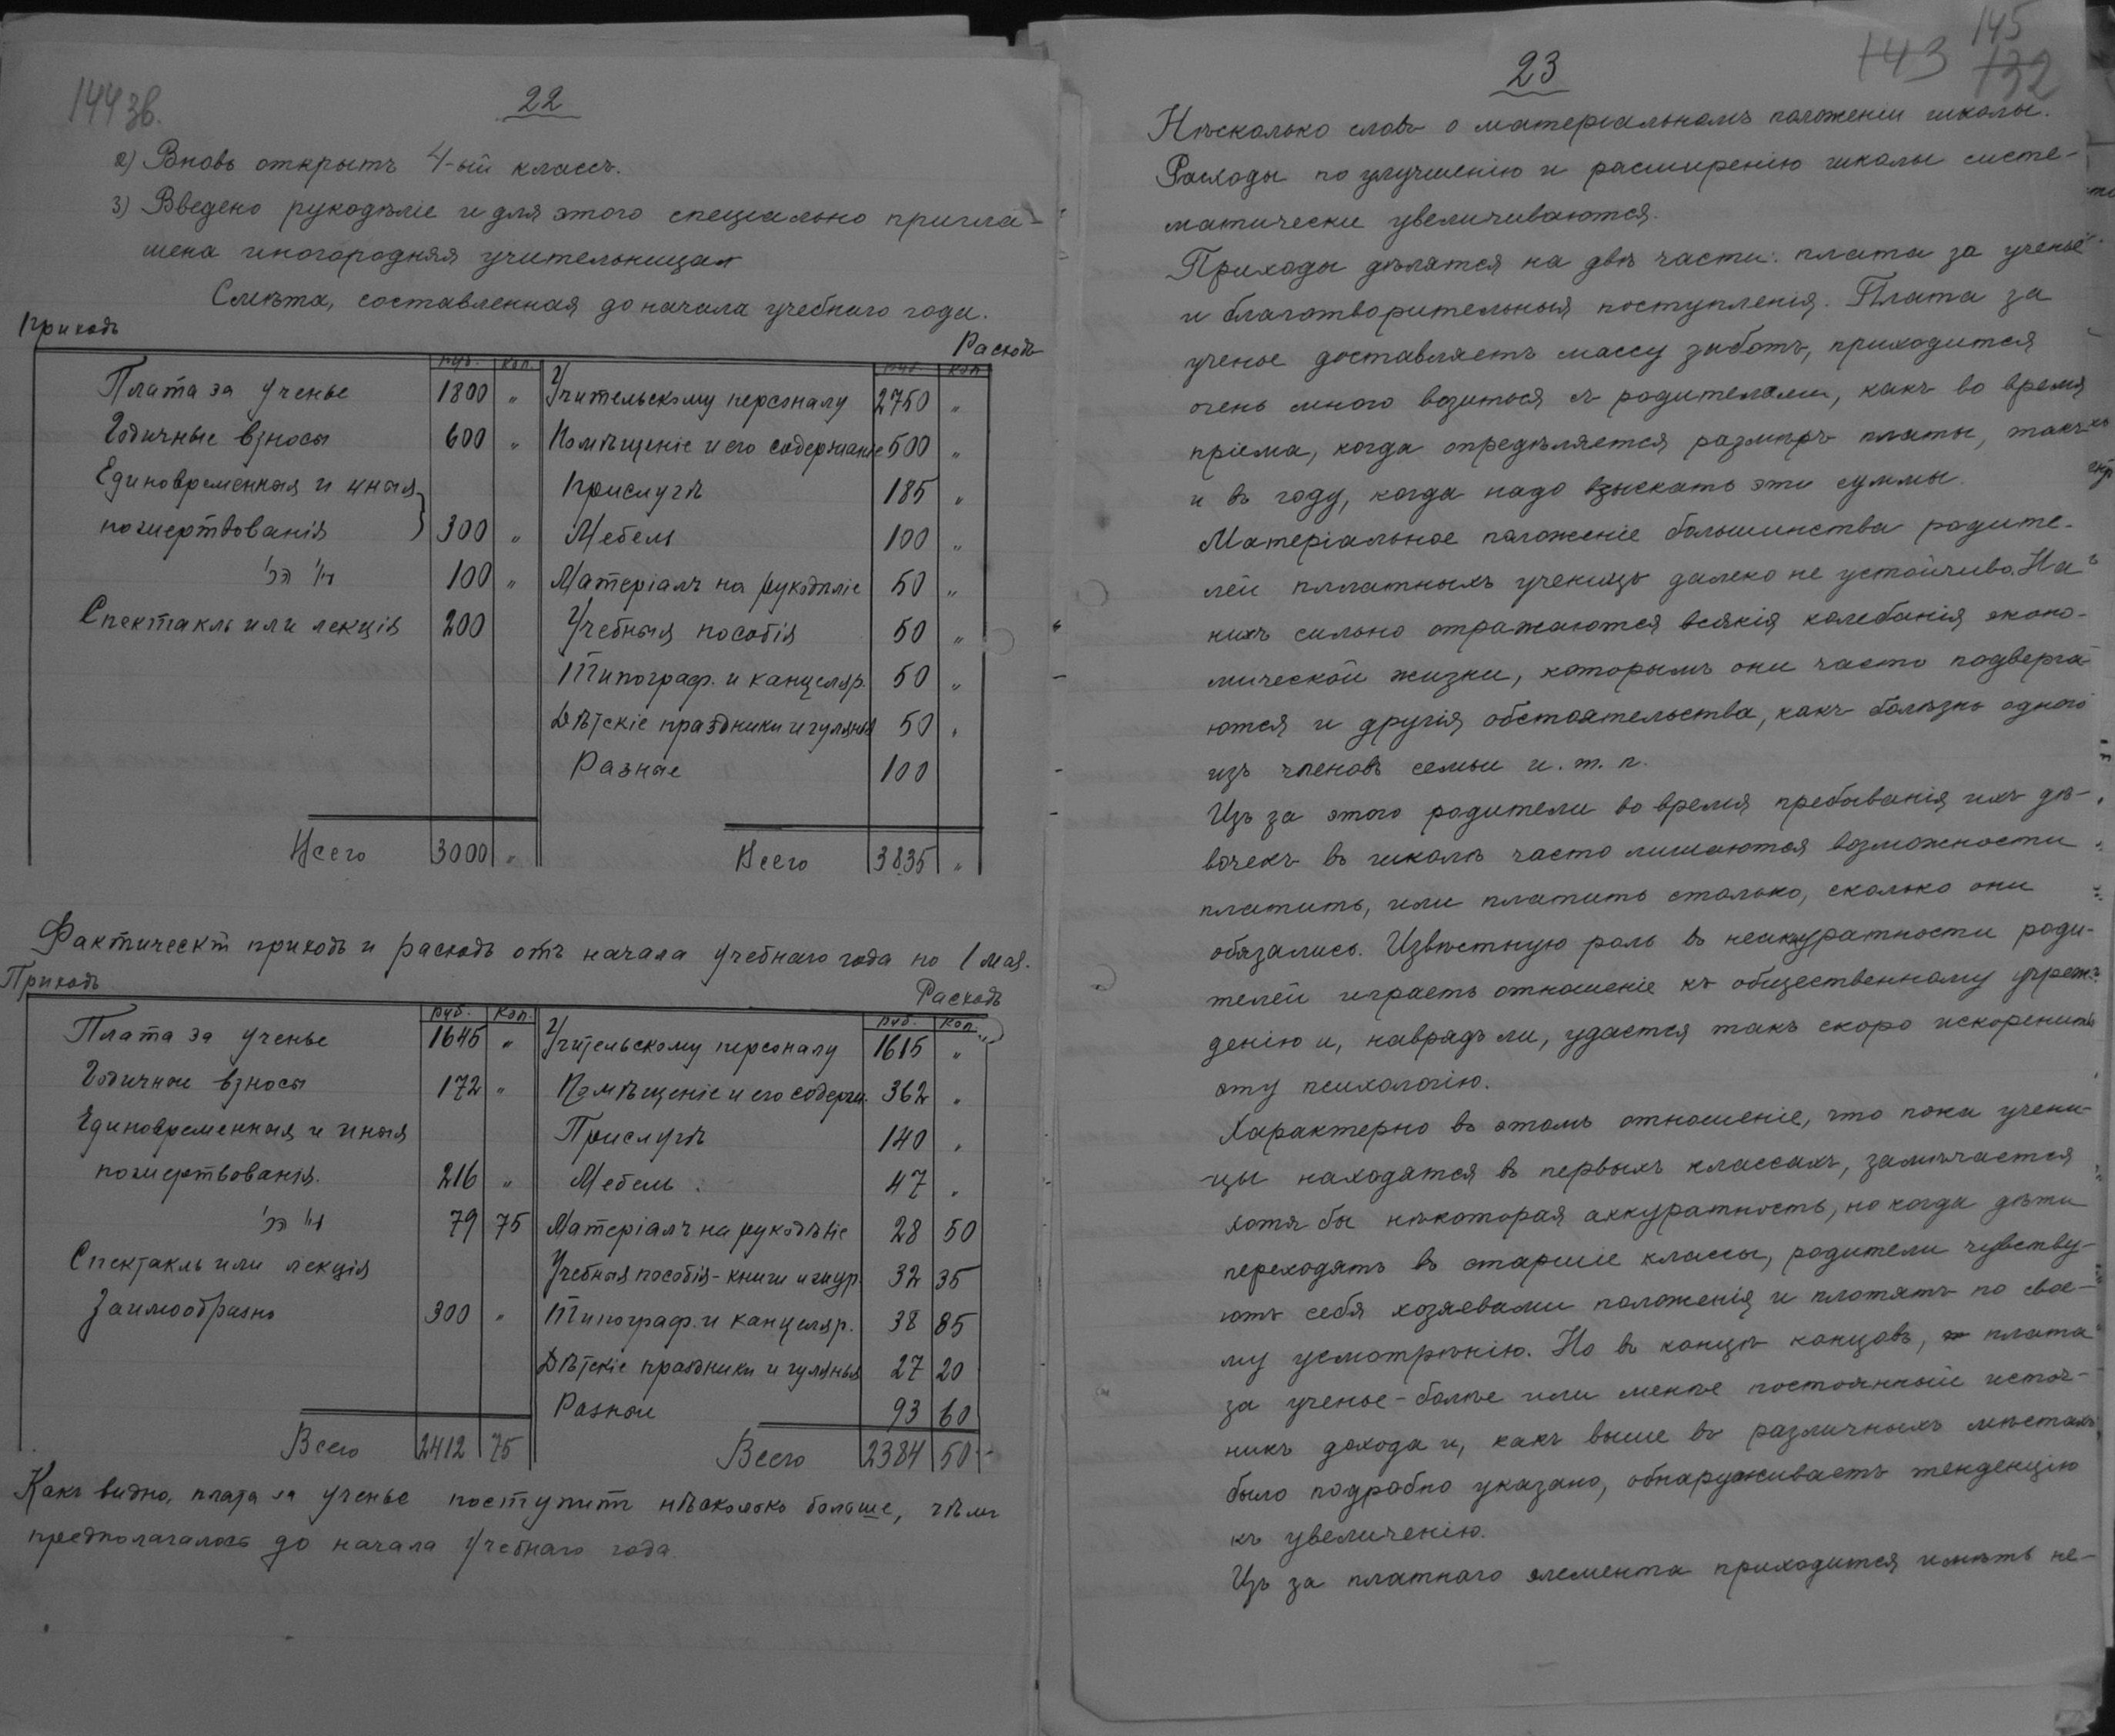 144 зв.
22
2) Вновь открытъ 4-ый классъ.
3) Введено рукодѣліе и для этого спеціально пригла-
шена иногородняя учительница
Смѣта, составленная до начала учебнаго года.
Приходъ Расходъ
руб. коп. руб. коп.
Плата за ученье 1800 " Учительскому персоналу 2750 "
Годичные взносы 600 " Помѣщеніе и его содержаніе 500 "
Единовременныя и иныя Прислугѣ 185 "
пожертвованія 300 " Мебель 100 "
100 " Матеріалъ на рукодѣліе 50 "
Спектакль или лекція 200 Учебныя пособія 50 "
Типограф. и канцеляр. 50 "
Дѣтскіе праздники и гулянья 50 "
Разные 100
Всего 3000 " Всего 3835 "
Фактическій приходъ и расходъ отъ начала учебнаго года по 1 мая.
Приходъ Расходъ
руб. коп. руб. коп.
Плата за ученье 1645 " Учительскому персоналу 1615 "
Годичные взносы 172 " Помѣщеніе и его содерж. 362 "
Единовременныя и иныя Прислугѣ 140 "
пожертвованія. 216 " Мебель 47 "
79 75 Матеріалъ на рукодѣліе 28 50
Спектакль или лекція Учебныя пособія - книги и жур. 32 35
Заимообразно 300 " Типограф. и канцеляр. 38 85
Дѣтскіе праздники и гулянья 27 20
Разные 93 60
Всего 2412 75 Всего 2384 50
Какъ видно, плата за ученье поступитъ нѣсколько больше, чѣмъ
предполагалось до начала учебнаго года.
143 145
132
23
Нѣсколько словъ о матеріальномъ положеніи школы.
Расходы по улучшенію и расширенію школы систе-
матически увеличиваются.
Приходы дѣлятся на двѣ части: плата за ученье
и благотворительныя поступленія. Плата за
ученье доставляетъ массу заботъ, приходится
очень много возиться съ родителями, какъ во время
пріема, когда опредѣляется размѣръ платы, такъ
и въ году, когда надо взыскать эти суммы.
Матеріальное положеніе большинства родите-
лей платныхъ ученицъ далеко не устойчиво. На
нихъ сильно отражаются всякія колебанія эконо-
мической жизни, которымъ они часто подверга-
ются и другія обстоятельства, какъ болѣзнь одного
изъ членовъ семьи и. т. п.
Изъ за этого родители во время пребыванія ихъ дѣ-
вочекъ въ школѣ часто лишаются возможности
платить, или платить столько, сколько они
обязались. Извѣстную роль въ неаккуратности роди-
телей играетъ отношеніе къ общественному учреж-
денію и, наврядъ ли, удастся такъ скоро искоренить
эту психологію.
Характерно въ этомъ отношеніе, что пока учени-
цы находятся въ первыхъ классахъ, замѣчается
хотя бы нѣкоторая аккуратность, но когда дѣти
переходятъ въ старшіе классы, родители чувству-
ютъ себя хозяевами положенія и плотятъ по свое-
му усмотрѣнію. Но въ концѣ концовъ, плата
за ученье - болѣе или менѣе постоянный источ-
никъ дохода и, какъ выше въ различныхъ мѣстахъ
было подробно указано, обнаруживаетъ тенденцію
къ увеличенію.
Изъ за платнаго элемента приходится имѣть не-